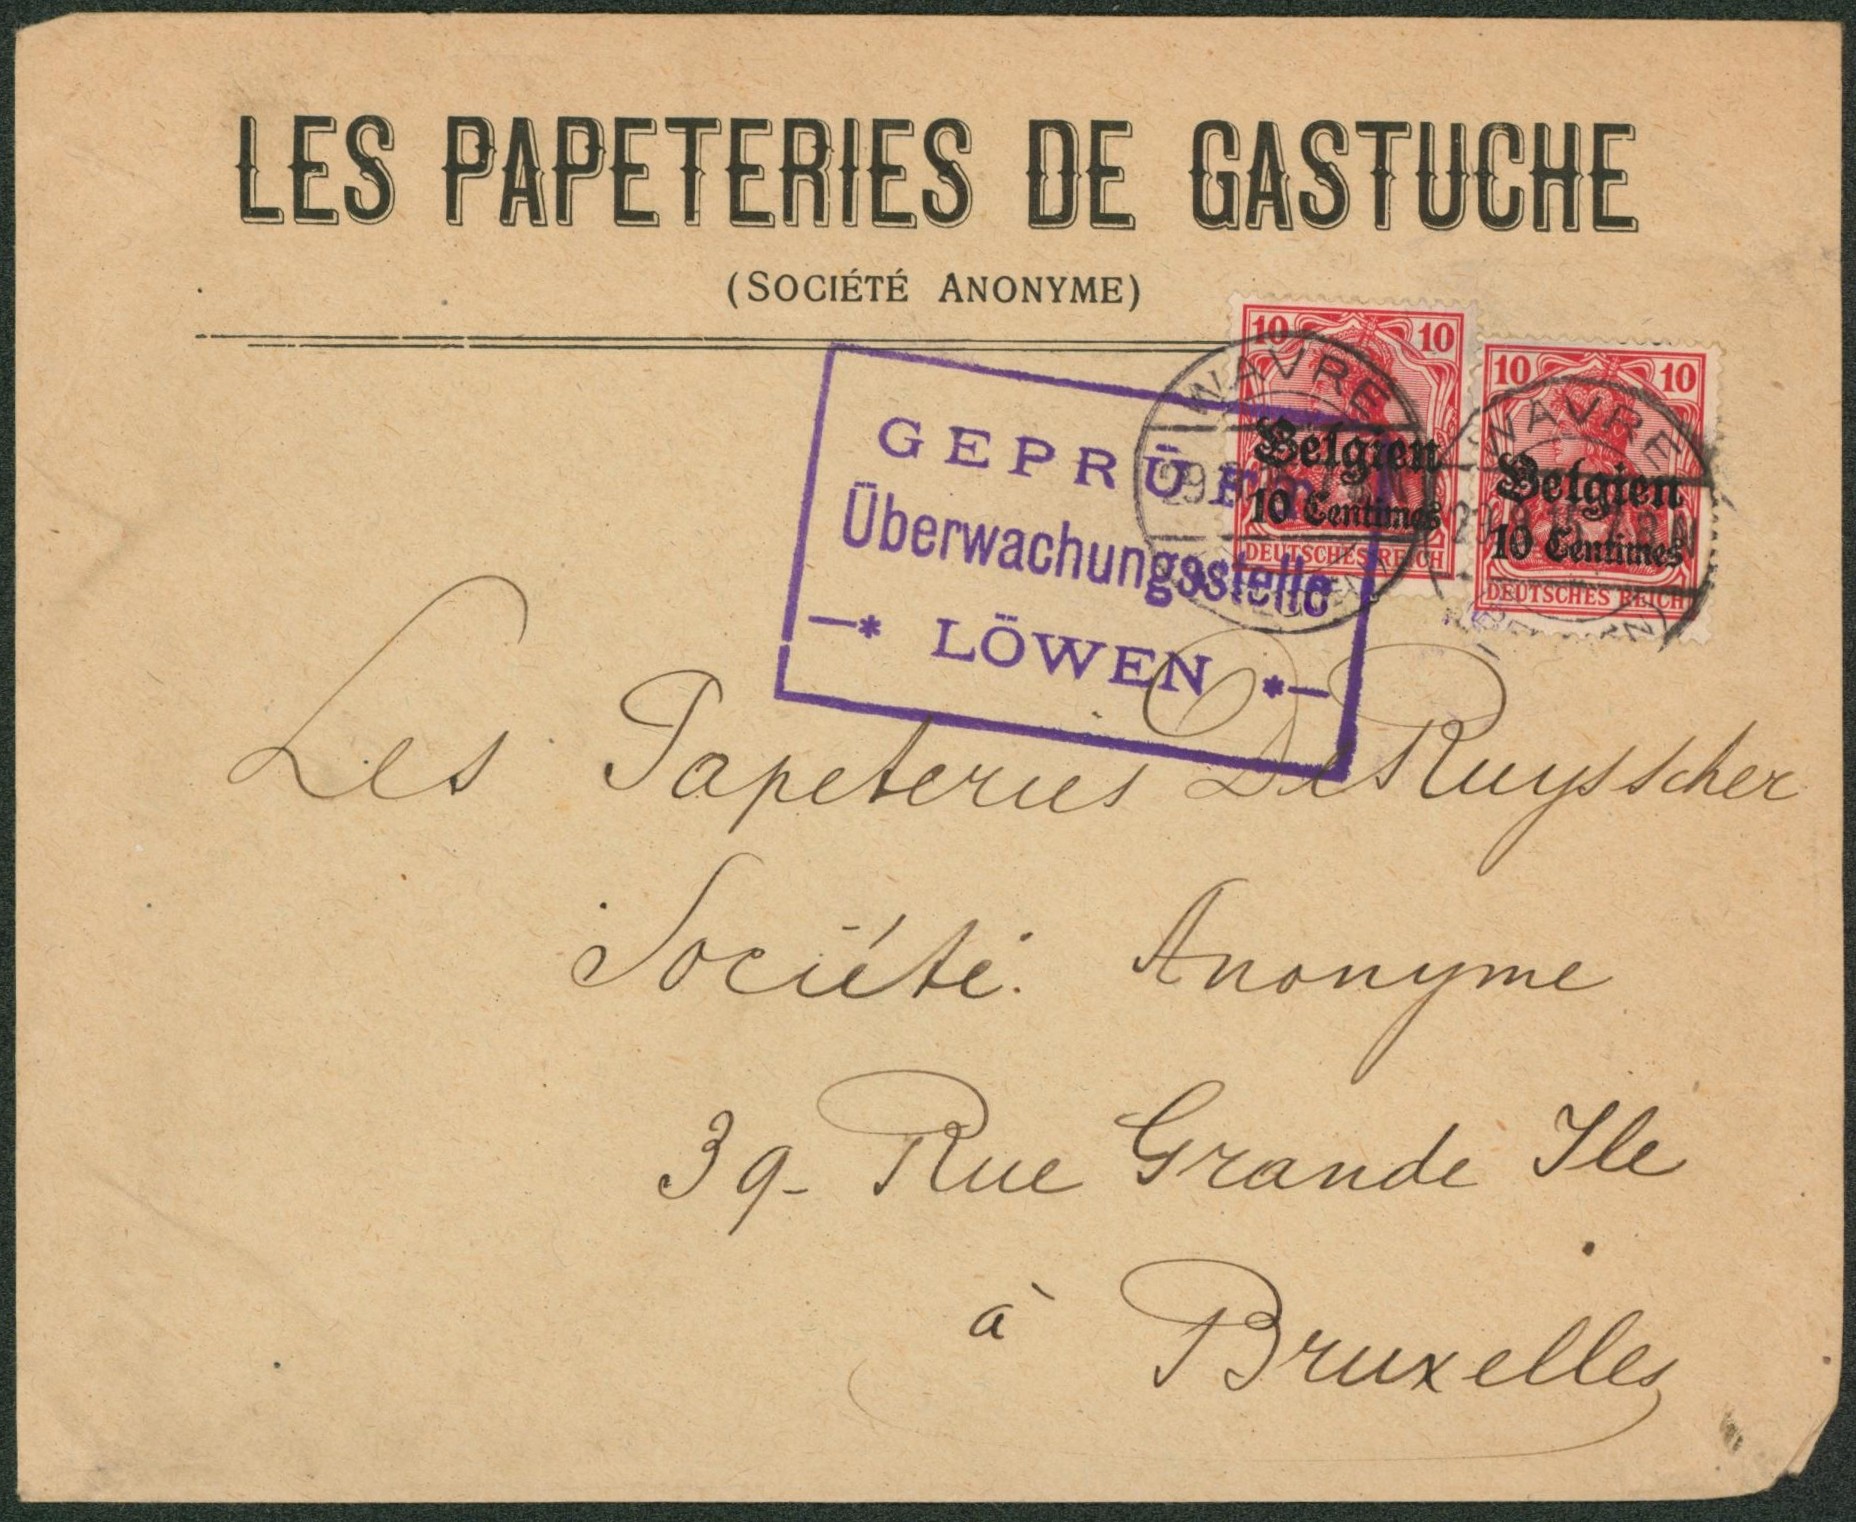 LES PAPETERIES DE GASTUCHE
(SOCIÉTÉ ANONYME)
10 10
Belgien
10 Centimes
DEUTSCHES REICH
10 10
Belgien
10 Centimes
DEUTSCHES REICH
WAVRE
WAVRE
GEPRÜFT
Überwachungsstelle
—* LÖWEN *—
Les Papeteries De Ruysscher
Société Anonyme
39- Rue Grande Ile
à Bruxelles